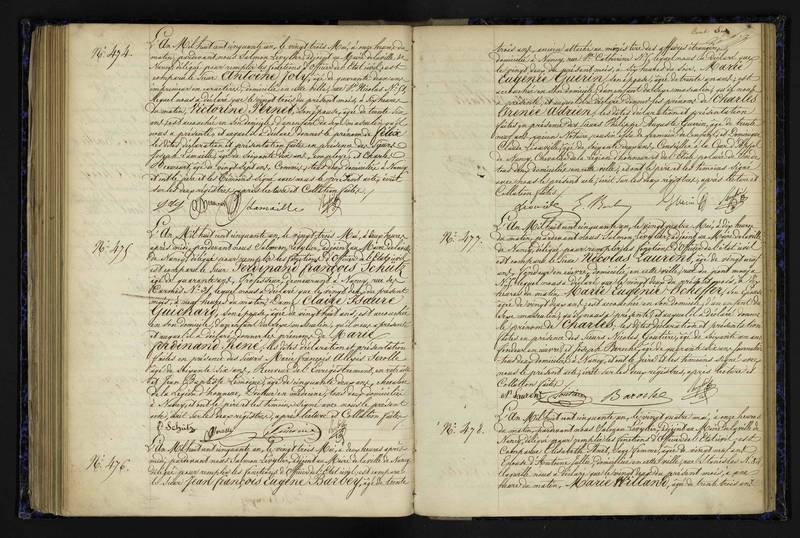 N.° 474.
L'An Mil huit cent cinquante un, le vingt trois Mai, à onze heures du
matin, pardevant nous Salmon Levylier, adjoint au Maire de la ville de
Nancy, délégué pour remplir les fonctions d'Officier de l'Etat civil, est
comparu le Sieur Antoine Joly, âgé de quarante deux ans,
imprimeur en caractères, domicilié en cette ville, rue St. Nicolas N.°
lequel nous a déclaré que le vingt trois du présent mois, à six heures
du matin, Victorine Pernet, son épouse, âgée de trente six
ans, est accouchée en son domicile, d'un enfant du sexe masculin, qu'il
nous a présenté, et auquel il a déclaré donner le prénom de Félix
les dites déclaration et présentation faites en présence des Sieurs
Joseph Lamaille, âgé de soixante dix ans, employé, et Charles
âgé de vingt sept ans, Commis, tous deux domiciliés à Nancy
et ont le père et les témoins Signé avec nous le présent acte, écrit
sur les deux registres, après lecture et Collation faites.
Joly Lamaille
N.° 475.
L'An Mil huit cent cinquante un, le vingt trois Mai, à deux heures
après midi, pardevant nous Salmon Levylier, adjoint au Maire de la ville
de Nancy, délégué pour remplir les fonctions d'Officier de l'Etat civil
est comparu le Sieur Ferdinand François Schütz
âgé de quarante ans, Professeur, demeurant à Nancy, rue
N.° 21, lequel nous a déclaré que le vingt deux du présent
mois, à huit heures du matin, Dame Claire Baure
Guichard, son épouse, âgée de vingt huit ans, est accouchée
en son domicile, d'un enfant du sexe masculin, qu'il nous a présenté
et auquel il a déclaré donner les prénoms de Marie
Ferdinand René, les dites déclaration et présentation
faites en présence des Sieurs Marie François Alexis
âgé de soixante six ans, Receveur de l'Enregistrement, en retraite
et Jean Baptiste Simonin, âgé de cinquante deux ans, chevalier
de la légion d'honneur, Docteur en médecine, tous deux domiciliés
à Nancy, et ont le père et les témoins, Signé avec nous le présent
acte, écrit sur les deux registres, après lecture et Collation faites.
F. Schütz Simonin
N.° 476.
L'An Mil huit cent cinquante un, le vingt trois Mai, à deux heures après
midi, pardevant nous Salmon Levylier, adjoint au Maire de la ville de Nancy
délégué pour remplir les fonctions d'Officier de l'Etat civil, est comparu
le Sieur Jean François Eugène Barbey, âgé de trente
trois ans, ancien attaché au ministère des affaires étrangères,
domicilié à Nancy, rue Ste. Catherine N.° lequel nous a déclaré que
le vingt deux du présent mois, à six heures du soir, Marie
Eugénie Guérin, son épouse, âgée de trente un ans, est
accouchée en son domicile, d'un enfant du sexe masculin, qu'il nous
a présenté, et auquel il a déclaré donner les prénoms de Charles
Irénée Adrien, les dites déclaration et présentation
faites en présence des Sieurs Philippe Auguste Guérin, âgé de trente
ans, ancien Notaire, cousin germain de l'enfant, et Dominique
Claude Liouville, âgé de soixante ans, Conseiller à la Cour d'Appel
de Nancy, Chevalier de la légion d'honneur
tous deux domiciliés en cette ville, et ont le père et les témoins Signé
avec nous le présent acte, écrit sur les deux registres, après lecture et
Collation faites.
Liouville E. Barbey Guérin
N.° 477.
L'An Mil huit cent cinquante un, le vingt quatre Mai, à dix heures
du matin, pardevant nous Salmon Levylier, adjoint au Maire de la ville
de Nancy, délégué pour remplir les fonctions d'Officier de l'Etat civil
est comparu le Sieur Nicolas Laurent, âgé de vingt neuf
ans, fondeur en cuivre, domicilié en cette ville, rue du pont mouja
N.° lequel nous a déclaré que le vingt trois du présent mois, à
heures du matin, Marie Rose Bouillon, son épouse
âgée de vingt deux ans, est accouchée en son domicile, d'un enfant du
sexe masculin, qu'il nous a présenté, et auquel il a déclaré donner
le prénom de Charles, les dites déclaration et présentation
faites en présence des Sieurs Nicolas Gautier, âgé de cinquante un ans
fondeur en cuivre, et Joseph Baroche, âgé de quarante ans,
tous deux domiciliés à Nancy, et ont le père et les témoins Signé avec
nous le présent acte, écrit sur les deux registres, après lecture et
Collation faites.
N. Laurent Baroche
N.° 478.
L'An Mil huit cent cinquante un, le vingt quatre Mai, à onze heures
du matin, pardevant nous Salmon Levylier, adjoint au Maire de la ville de
Nancy, délégué pour remplir les fonctions d'Officier de l'Etat civil, est
Comparue Elisabeth âgée de vingt neuf ans
Epouse d'Antoine domiciliée en cette ville, rue St. Nicolas N.° 34
laquelle nous a déclaré que le vingt deux du présent mois, à une
heure du matin, Marie Willand, âgée de trente trois ans